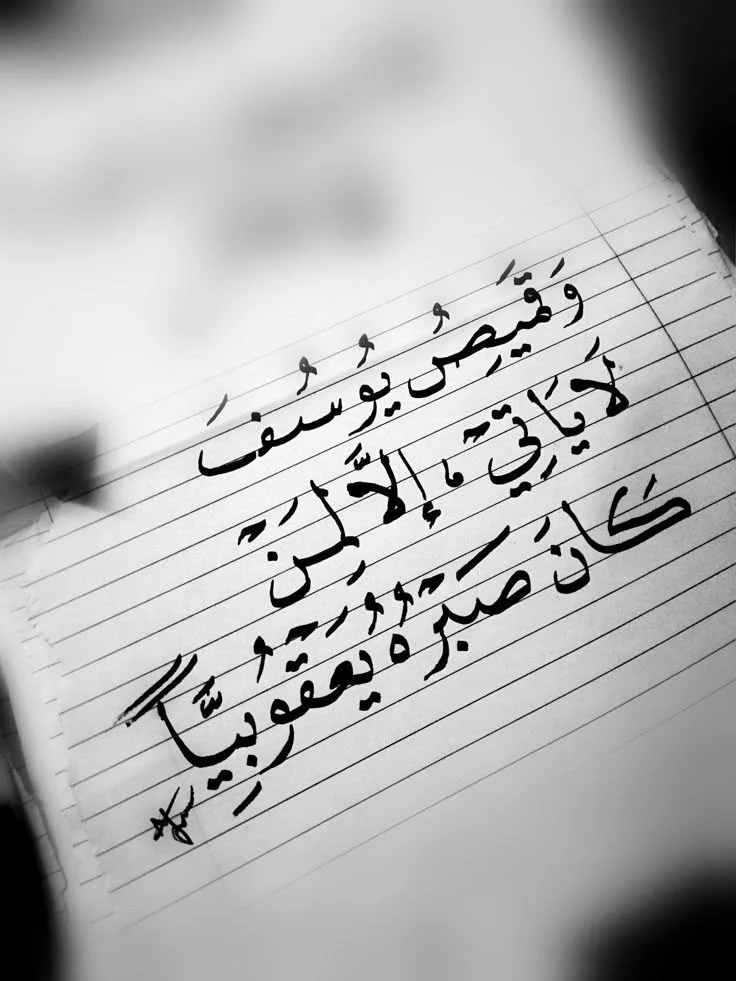 وَقَمِيصُ يُوسُفَ
لَا يَاتِي إلَّا لِمَنْ
كَانَ صَبْرُهُ يَعْقُوبِيَّاً